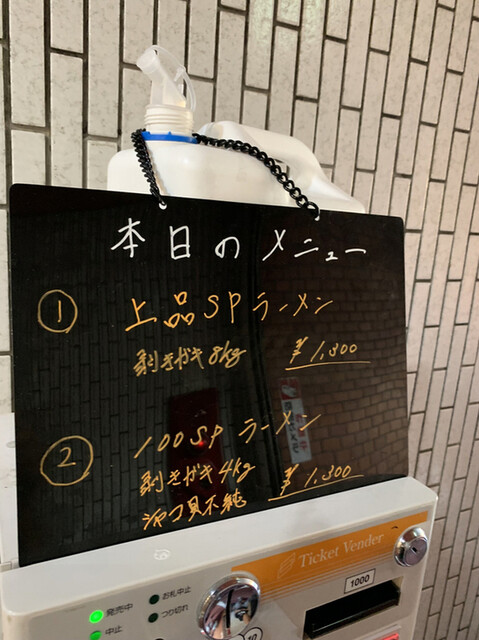 本日のメニュー
① 上品SPラーメン
剥きガキ8kg ¥1,300
② 100SPラーメン
剥きガキ4kg ¥1,300
シャコ貝不純
Ticket Vender
1000
発売中
お札中止
中止
つり切れ
10